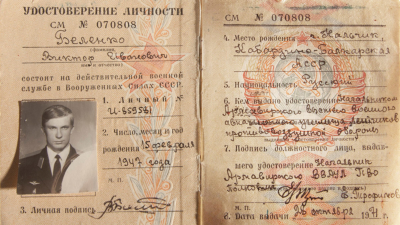 УДОСТОВЕРЕНИЕ ЛИЧНОСТИ
СМ № 070808
Беленко
(фамилия)
Виктор Иванович
(имя и отчество)
состоит на действительной военной
службе в Вооруженных Силах СССР.
1. Личный №
2. Число, месяц и год
рождения 15 февраля
1947 года
м. п.
3. Личная подпись
СМ № 070808
4. Место рождения г. Нальчик
Кабардино-Балкарская
АССР
5. Национальность Русский
6. Кем выдано удостоверение Начальником
Армавирского высшего военного
авиационного училища летчиков
противовоздушной обороны
7. Подпись должностного лица, выдав-
шего удостоверение Начальник
Армавирского ВВАУЛ ПВО
м. п.
8. Дата выдачи октября 1971 г.